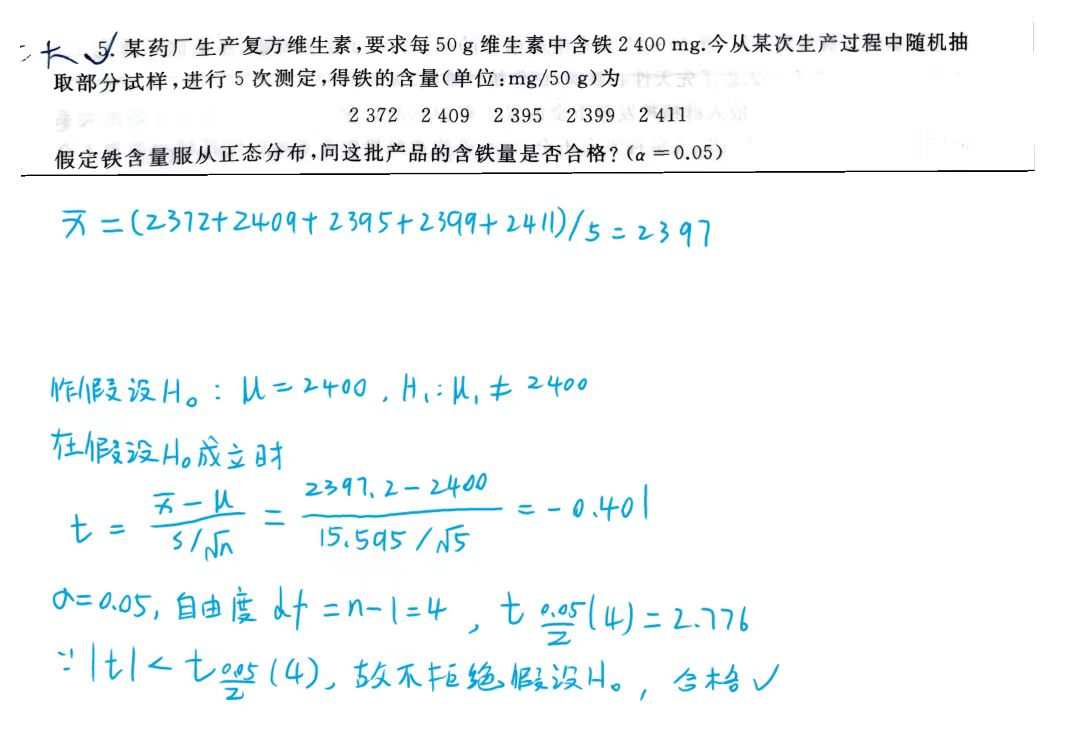 二大 ✓ 5. 某药厂生产复方维生素,要求每 50 g 维生素中含铁 2 400 mg.今从某次生产过程中随机抽
取部分试样,进行 5 次测定,得铁的含量(单位:mg/50 g)为
2 372 2 409 2 395 2 399 2 411
假定铁含量服从正态分布,问这批产品的含铁量是否合格?(α=0.05)
x̄ =(2372+2409+2395+2399+2411)/5=2397
作假设H₀: μ=2400, H₁:μ₁≠2400
在假设H₀成立时
t = (x̄-μ)/(s/√n) = (2397.2-2400)/(15.595/√5) = -0.401
α=0.05, 自由度 df=n-1=4, t 0.05/2 (4)=2.776
∵|t|<t 0.05/2 (4), 故不拒绝假设H₀, 合格✓